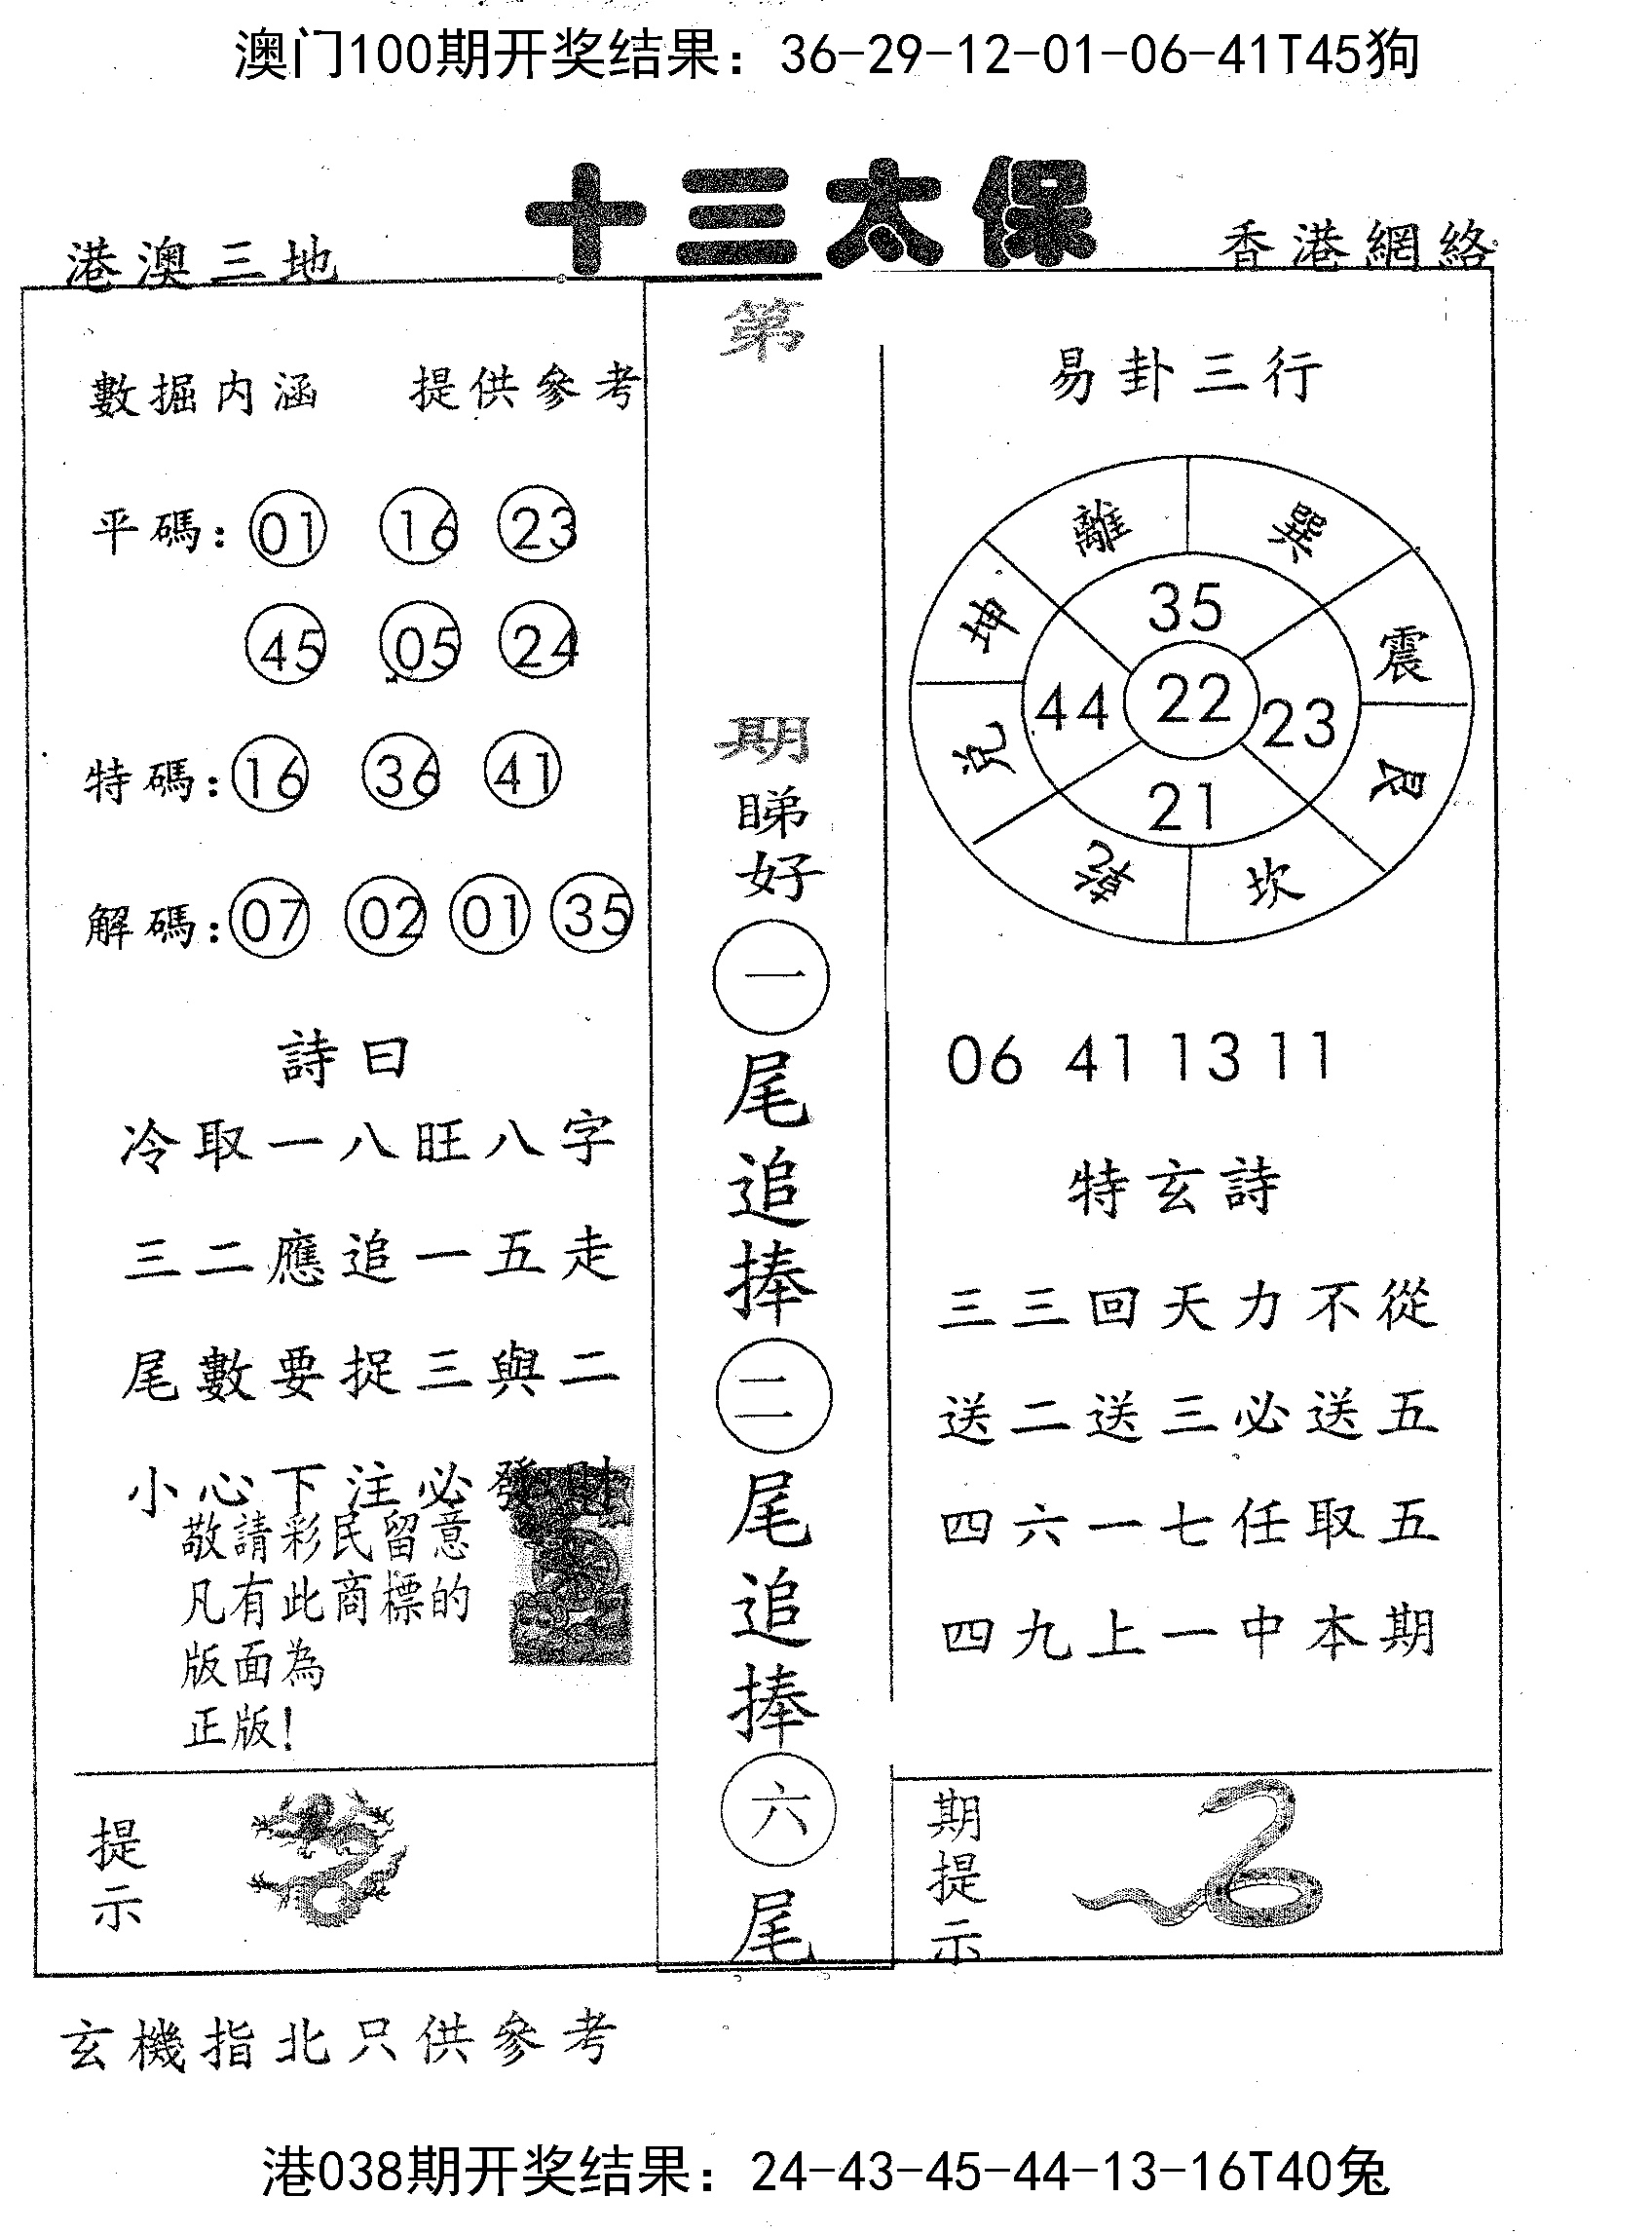 澳门100期开奖结果：36-29-12-01-06-41T45狗
十三太保
港澳三地
香港網絡
數掘内涵 提供參考
平碼：01 16 23
45 05 24
特碼：16 36 41
解碼：07 02 01 35
詩曰
冷取一八旺八字
三二應追一五走
尾數要捉三與二
小心下注必發財
敬請彩民留意
凡有此商標的
版面為
正版！
提示
第
期
睇好
一
尾追捧
二
尾追捧
六
尾
易卦三行
離 巽
坤 震
兑 艮
乾 坎
35
44 22 23
21
06 41 13 11
特玄詩
三三回天力不從
送二送三必送五
四六一七任取五
四九上一中本期
期提示
玄機指北只供參考
港038期开奖结果：24-43-45-44-13-16T40兔